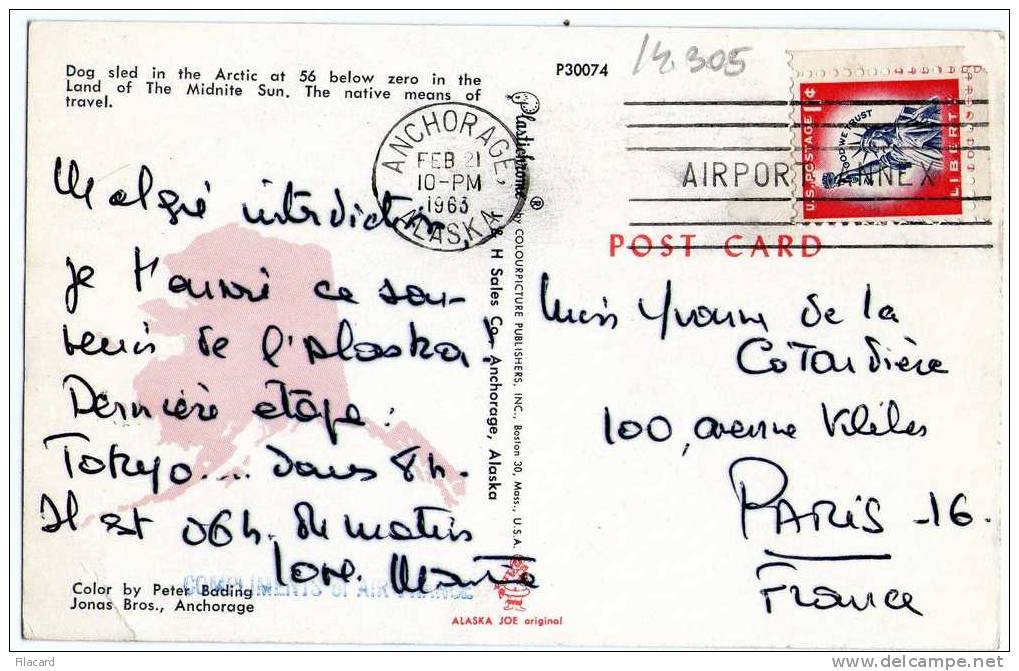 Dog sled in the Arctic at 56 below zero in the
Land of The Midnite Sun. The native means of
travel.
P30074
14305
ANCHORAGE,
FEB 21
10-PM
1963
ALASKA
AIRPORT ANNEX
U.S. POSTAGE 11¢
IN GOD WE TRUST
LIBERTY
POST CARD
Malgré interdiction,
je t'envoie ce sou-
venir de l'Alaska,
Dernière étape:
Tokyo.... dans 8h.
Il est 06h. du matin
love.
Miss Yvonne de la
Cotardière
100, avenue
PARIS -16.
France
Plastichrome® by COLOURPICTURE PUBLISHERS, INC., Boston 30, Mass., U.S.A.
J & H Sales Co., Anchorage, Alaska
Color by Peter Bading
Jonas Bros., Anchorage
COMPLIMENTS of AIR FRANCE
ALASKA JOE original
Filacard
delcampe.net